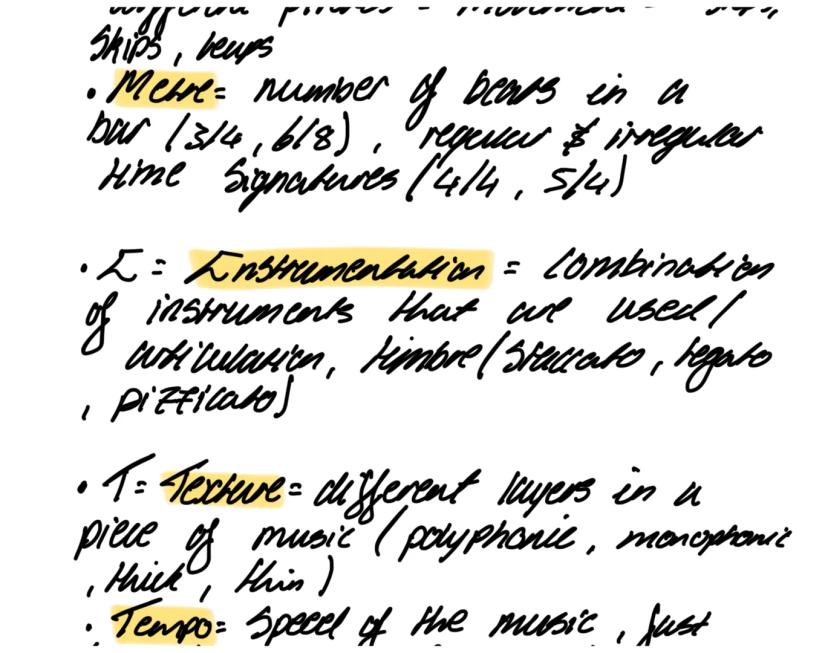 different pitches = movement = steps,
skips, leaps
• Metre= number of beats in a
bar (3/4, 6/8), regular & irregular
time signatures (4/4, 5/4)
• I = Instrumentation = combination
of instruments that are used/
articulation, timbre (staccato, legato
, pizzicato)
• T= Texture= different layers in a
piece of music (polyphonic, monophonic
, thick, thin)
• Tempo= speed of the music, fast